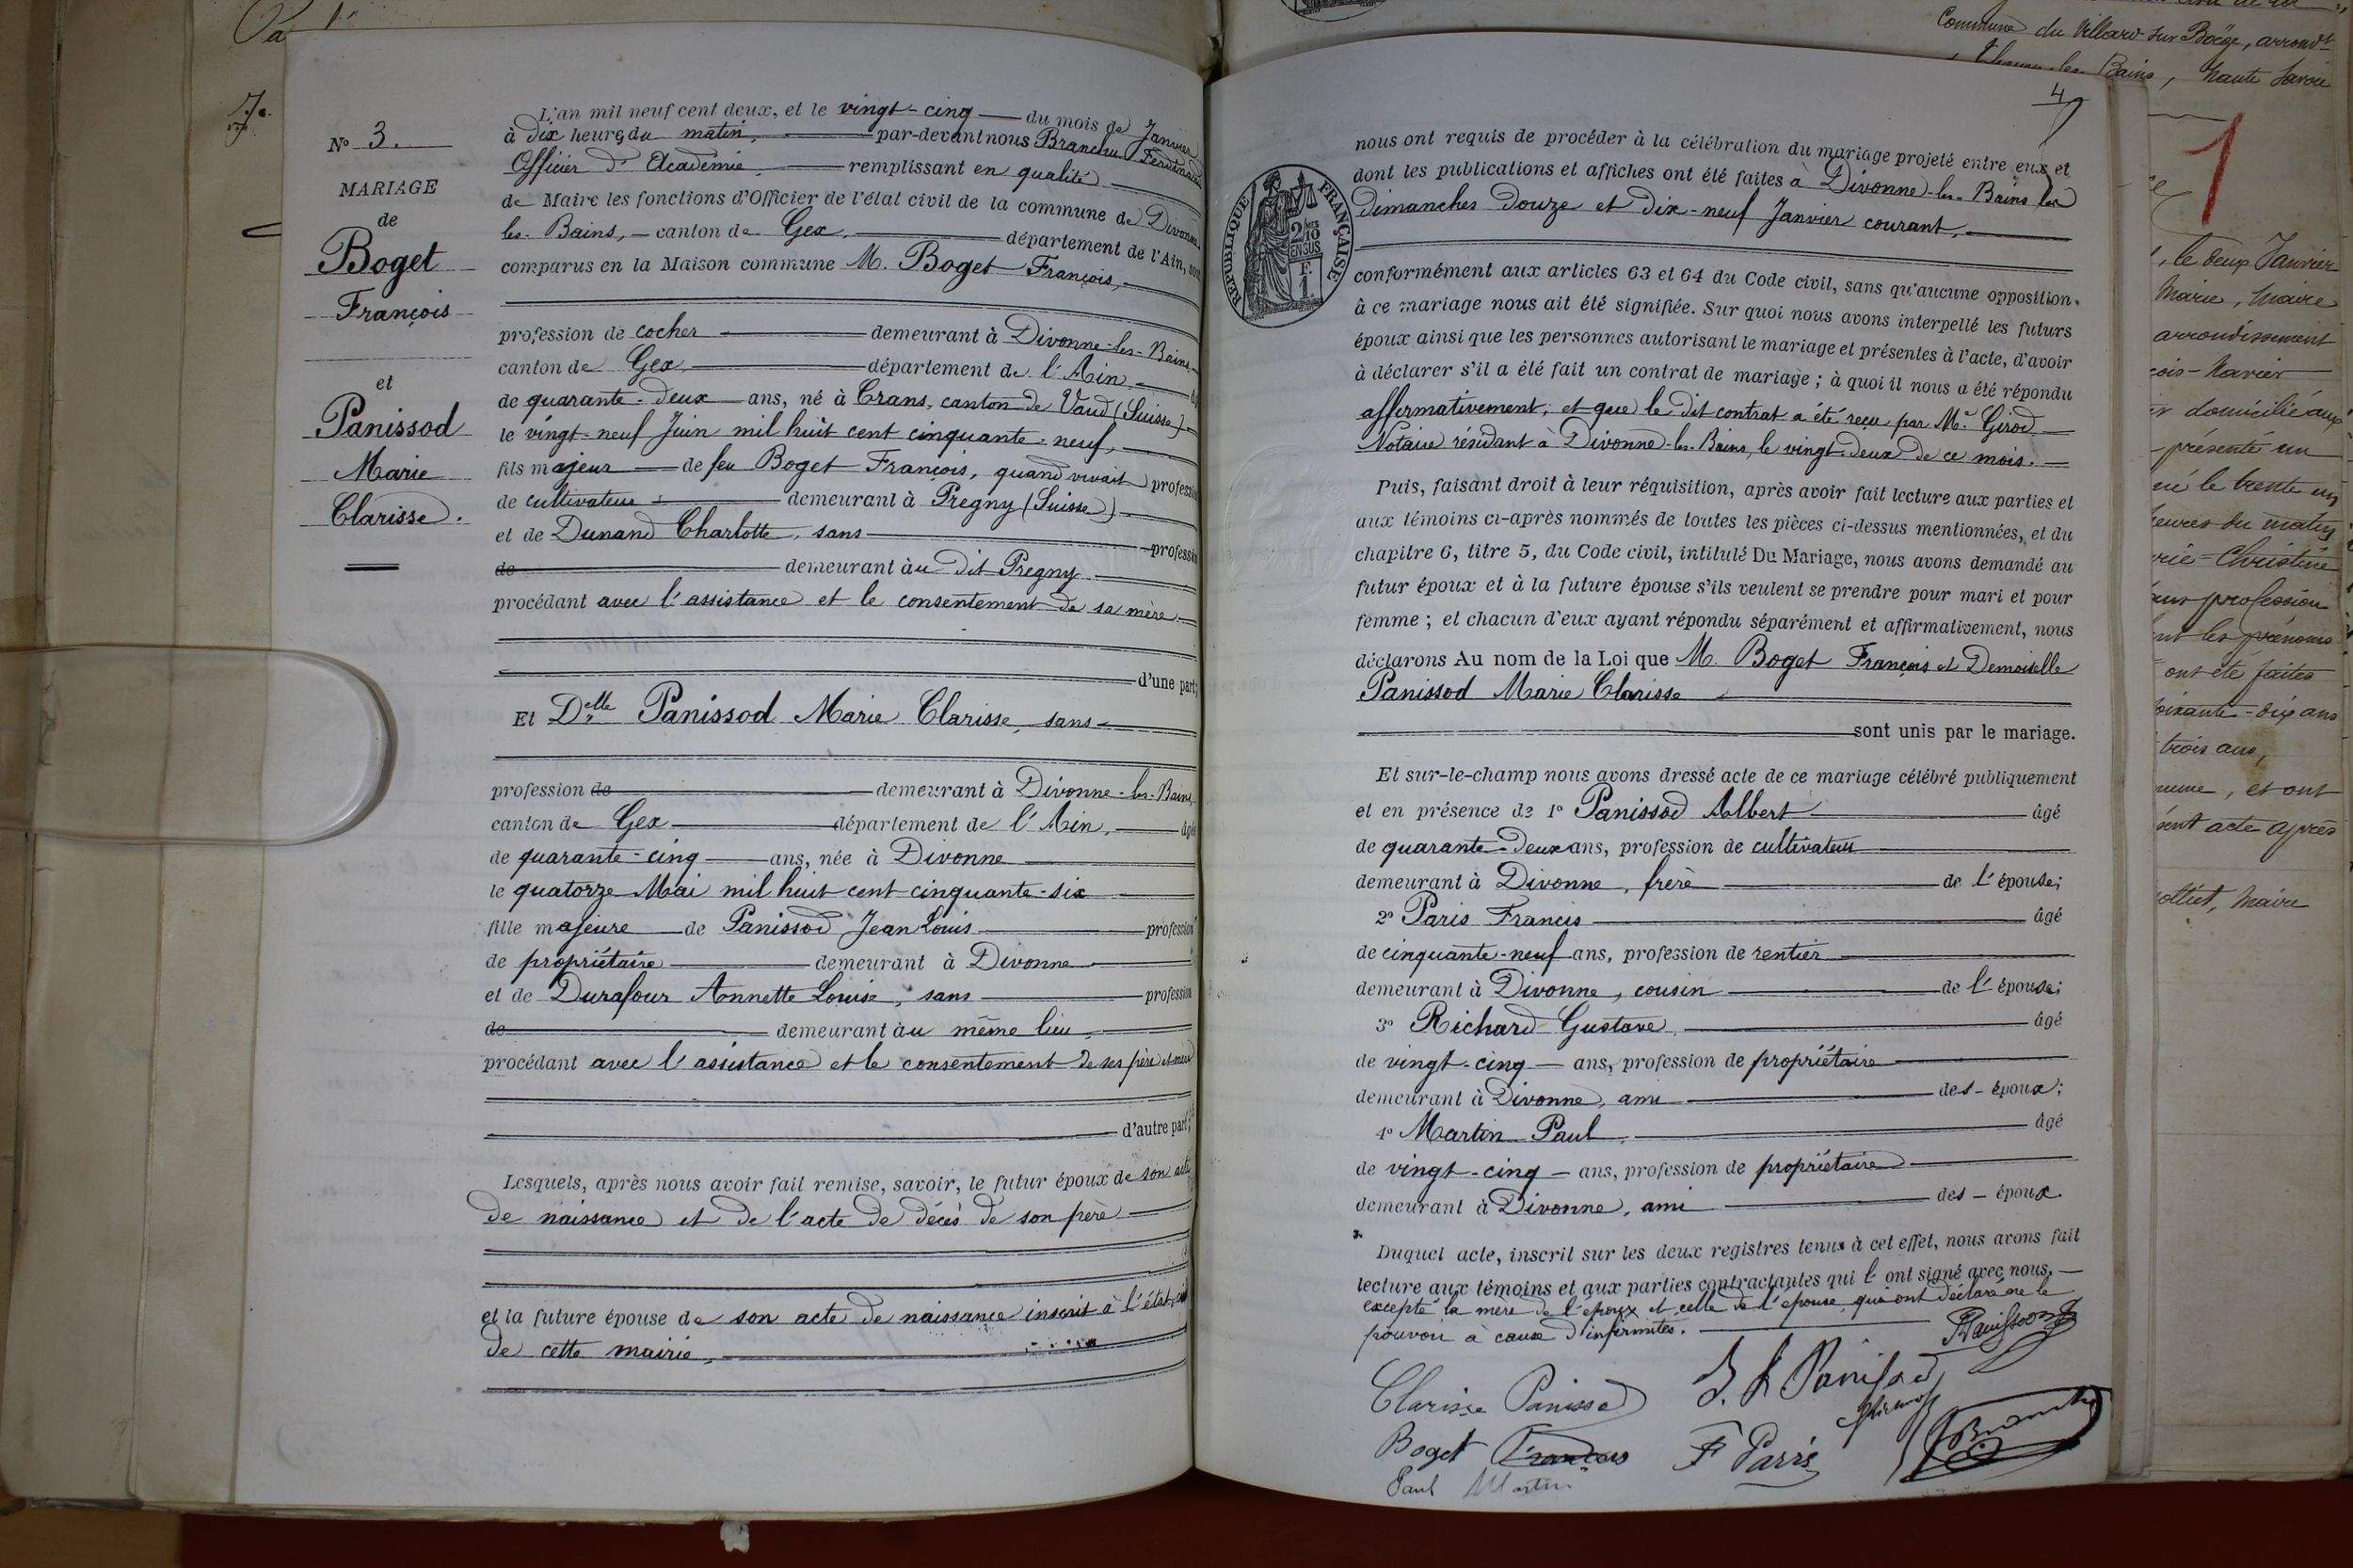 N° 3.
MARIAGE
de
Boget
François
et
Panissod
Marie
Clarisse.
L'an mil neuf cent deux, et le vingt-cinq du mois de Janvier
à dix heures du matin, par-devant nous Branchu Ferdinand
Officier d'Académie, remplissant en qualité
de Maire les fonctions d'Officier de l'état civil de la commune de Divonne
les-Bains, canton de Gex, département de l'Ain, sont
comparus en la Maison commune M. Boget François,
profession de cocher demeurant à Divonne-les-Bains,
canton de Gex, département de l'Ain,
de quarante-deux ans, né à Crans, canton de Vaud (Suisse)
le vingt-neuf Juin mil huit cent cinquante-neuf,
fils majeur de feu Boget François, quand vivait profession
de cultivateur demeurant à Pregny (Suisse)
et de Dunand Charlotte, sans profession
de demeurant au dit Pregny
procédant avec l'assistance et le consentement de sa mère
d'une part;
Et Delle Panissod Marie Clarisse, sans
profession de demeurant à Divonne-les-Bains,
canton de Gex département de l'Ain, âgée
de quarante-cinq ans, née à Divonne
le quatorze Mai mil huit cent cinquante-six
fille majeure de Panissod Jean Louis profession
de propriétaire demeurant à Divonne
et de Durafour Annette Louise, sans profession
de demeurant au même lieu,
procédant avec l'assistance et le consentement de ses père et mère
d'autre part;
Lesquels, après nous avoir fait remise, savoir, le futur époux de son acte
de naissance et de l'acte de décès de son père
et la future épouse de son acte de naissance inscrit à l'état civil
de cette mairie,
4
nous ont requis de procéder à la célébration du mariage projeté entre eux et
dont les publications et affiches ont été faites à Divonne-les-Bains les
dimanches douze et dix-neuf Janvier courant,
conformément aux articles 63 et 64 du Code civil, sans qu'aucune opposition
à ce mariage nous ait été signifiée. Sur quoi nous avons interpellé les futurs
époux ainsi que les personnes autorisant le mariage et présentes à l'acte, d'avoir
à déclarer s'il a été fait un contrat de mariage; à quoi il nous a été répondu
affirmativement, et que le dit contrat a été reçu par Me Girod
Notaire résidant à Divonne-les-Bains, le vingt-deux de ce mois.
Puis, faisant droit à leur réquisition, après avoir fait lecture aux parties et
aux témoins ci-après nommés de toutes les pièces ci-dessus mentionnées, et du
chapitre 6, titre 5, du Code civil, intitulé Du Mariage, nous avons demandé au
futur époux et à la future épouse s'ils veulent se prendre pour mari et pour
femme ; et chacun d'eux ayant répondu séparément et affirmativement, nous
déclarons Au nom de la Loi que M. Boget François et Demoiselle
Panissod Marie Clarisse
sont unis par le mariage.
Et sur-le-champ nous avons dressé acte de ce mariage célébré publiquement
et en présence de 1° Panissod Albert âgé
de quarante-deux ans, profession de cultivateur
demeurant à Divonne, frère de l'épouse;
2° Paris Francis âgé
de cinquante-neuf ans, profession de rentier
demeurant à Divonne, cousin de l'épouse;
3° Richard Gustave âgé
de vingt-cinq ans, profession de propriétaire
demeurant à Divonne, ami des époux;
4° Martin Paul, âgé
de vingt-cinq ans, profession de propriétaire
demeurant à Divonne, ami des époux
Duquel acte, inscrit sur les deux registres tenus à cet effet, nous avons fait
lecture aux témoins et aux parties contractantes qui l'ont signé avec nous,
excepté la mère de l'époux et celle de l'épouse, qui ont déclaré ne le
pouvoir à cause d'infirmités.
Clarisse Panissod
J. L Panissod
Boget François
F Paris
Paul Martin
RÉPUBLIQUE FRANÇAISE
2/10 EN SUS
F. 1.
Commune du Villard sur Boëge, arrondt
les Bains, haute Savoie
1
, le deux Janvier
Marie, Maire
arrondissement
domicilié aux
présenté un
né le trente un
heures du matin
Christine
profession
les prénoms
ont été faites
trois ans,
, et ont
acte après
, Maire